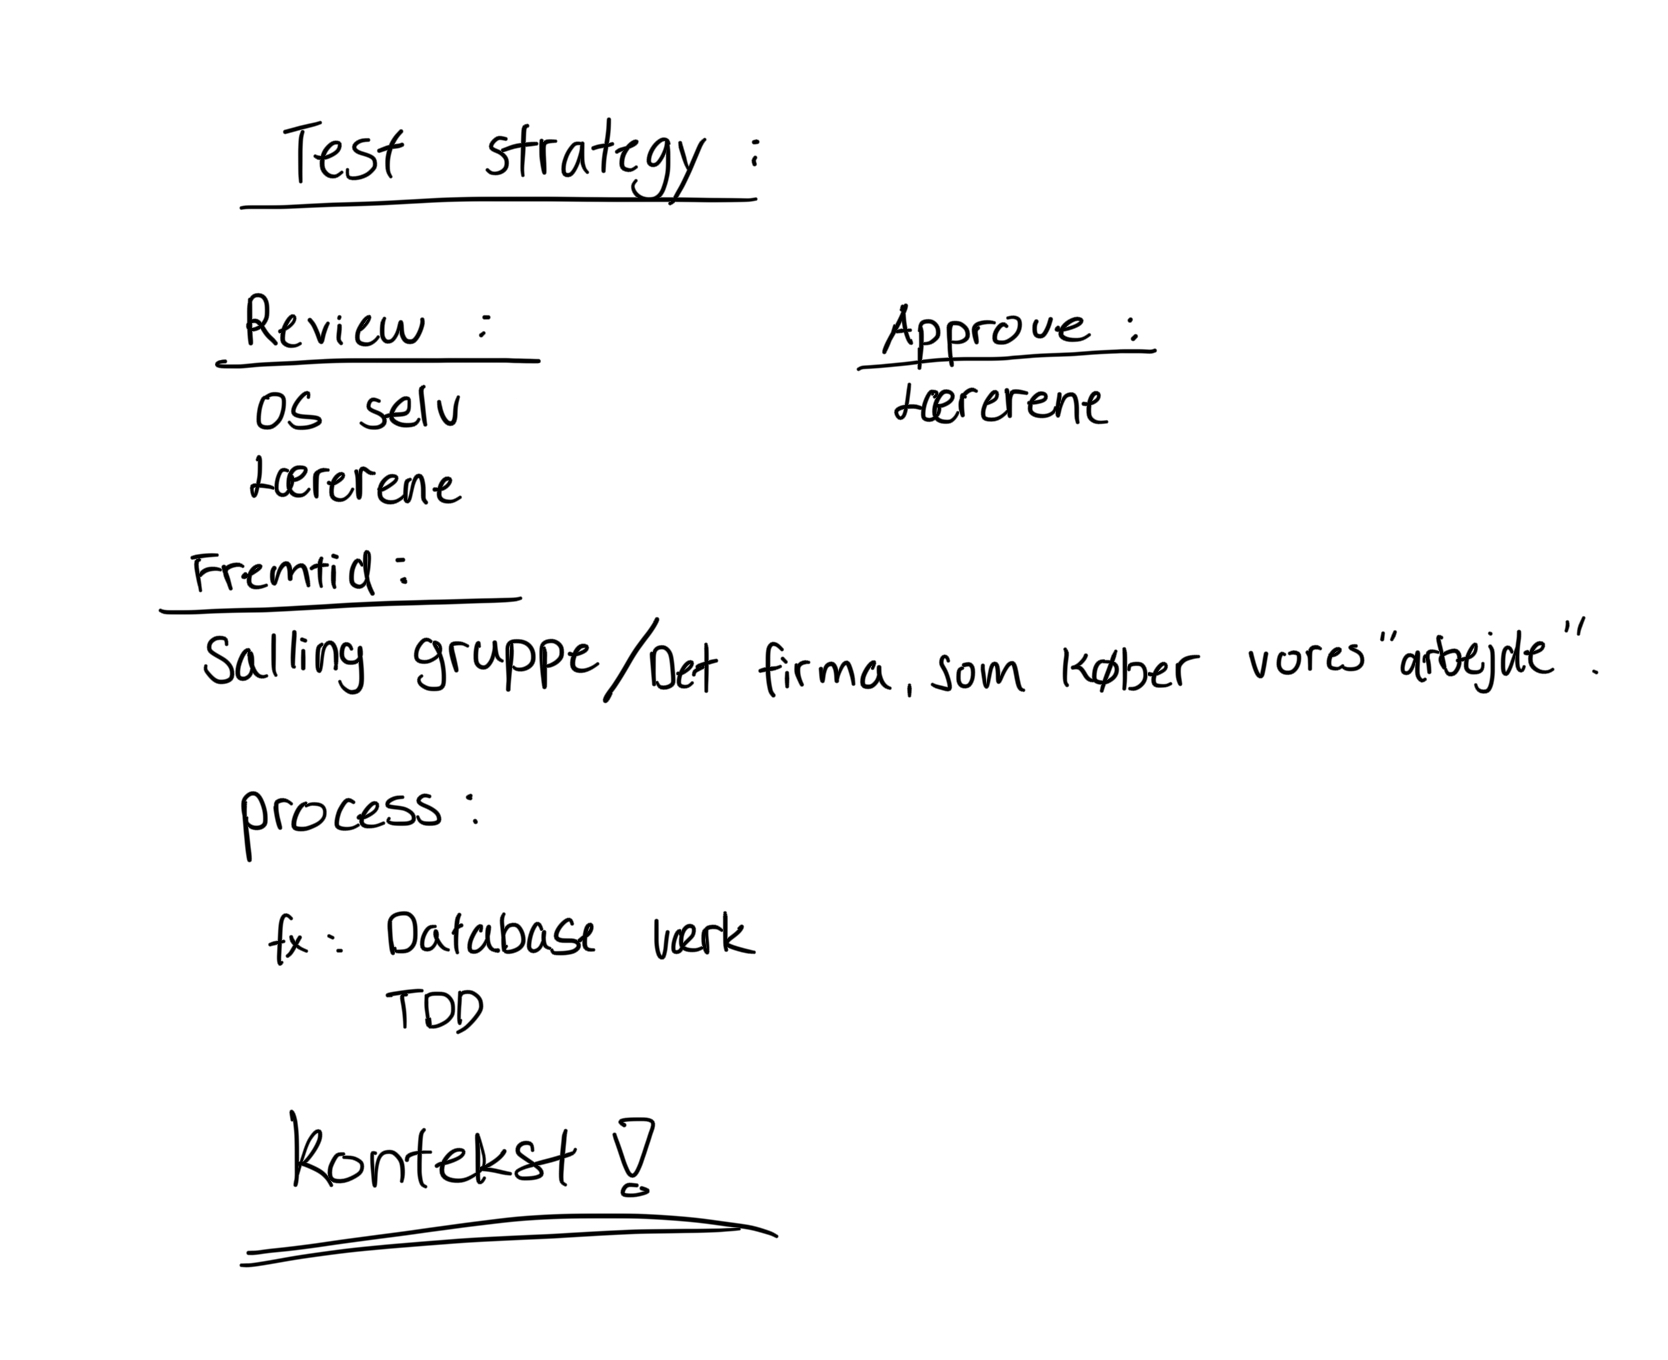 Test strategy :
Review :
OS selv
Lærerene
Approve :
Lærerene
Fremtid :
Salling gruppe/Det firma, som køber vores "arbejde".
process :
fx : Database værk
TDD
Kontekst !